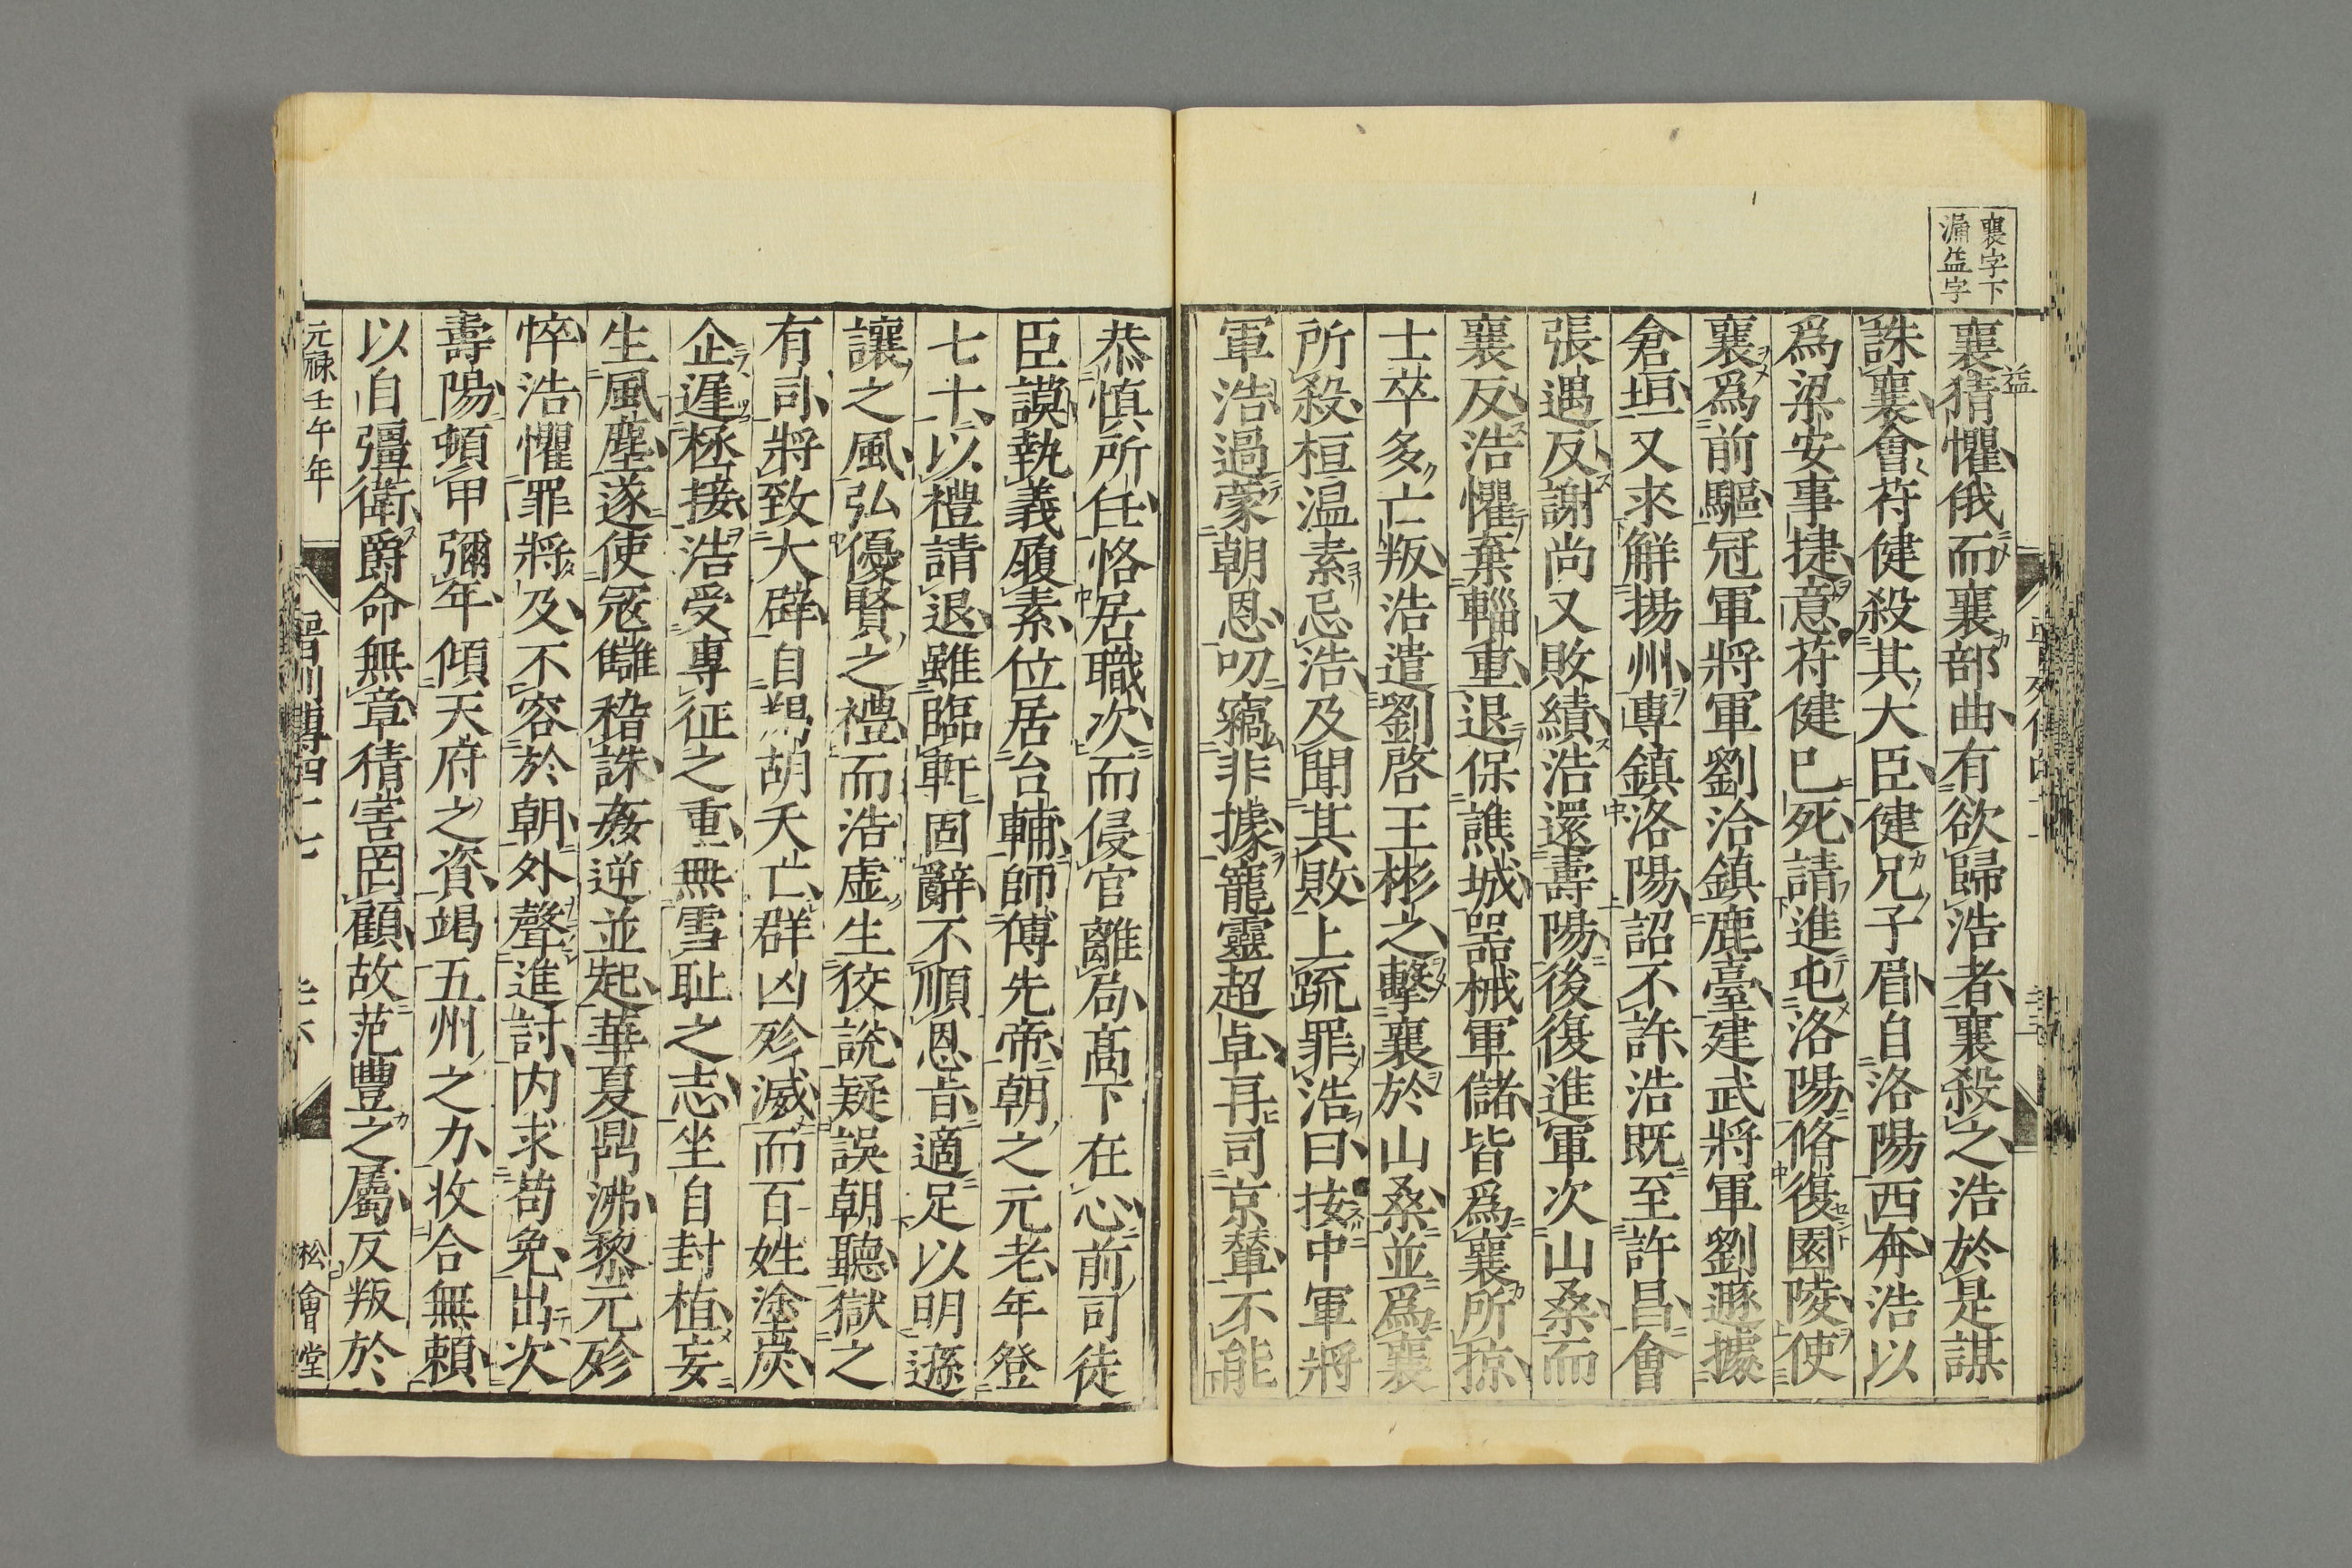 襄字下
漏益字
益
襄猜懼俄而襄部曲有欲歸浩者襄殺之浩於是謀
誅襄會苻健殺其大臣健兄子眉自洛陽西奔浩以
爲梁安事捷意苻健已死請進屯洛陽脩復園陵使
襄爲前驅冠軍將軍劉洽鎮鹿臺建武將軍劉遯據
倉垣又求解揚州專鎮洛陽詔不許浩既至許昌會
張遇反謝尚又敗績浩還壽陽後復進軍次山桑而
襄反浩懼棄輜重退保譙城器械軍儲皆爲襄所掠
士卒多亡叛浩遣劉啓王彬之擊襄於山桑並爲襄
所殺桓温素忌浩及聞其敗上疏罪浩曰按中軍將
軍浩過蒙朝恩叨竊非據寵靈超卓再司京輦不能
恭慎所任恪居職次而侵官離局髙下在心前司徒
臣謨執義履素位居台輔師傅先帝朝之元老年登
七十以禮請退雖臨軒固辭不順恩旨適足以明遜
讓之風弘優賢之禮而浩虛生狡說疑誤朝聽獄之
有司將致大辟自羯胡夭亡群凶殄滅而百姓塗炭
企遲拯接浩受專征之重無雪恥之志坐自封植妄
生風塵遂使寇讎稽誅姦逆並起華夏鼎沸黎元殄
悴浩懼罪將及不容於朝外聲進討内求苟免出次
壽陽頓甲彌年傾天府之資竭五州之力收合無賴
以自彊衛爵命無章猜害罔顧故范豐之屬反叛於
元禄壬午年
晋列傳四十七
松會堂